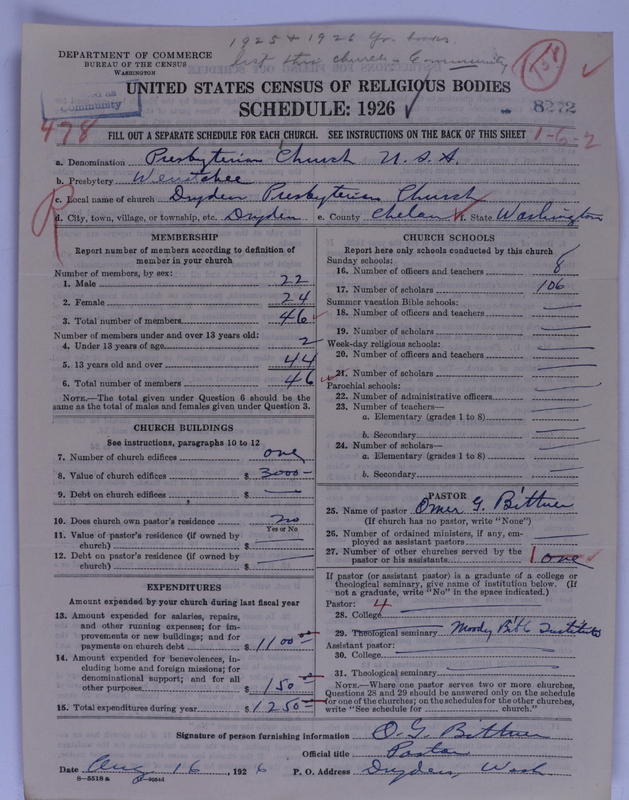 1925 & 1926 Yr. books
list this church - Community
DEPARTMENT OF COMMERCE
BUREAU OF THE CENSUS
WASHINGTON
as
Community
UNITED STATES CENSUS OF RELIGIOUS BODIES
SCHEDULE: 1926
8272
478
FILL OUT A SEPARATE SCHEDULE FOR EACH CHURCH. SEE INSTRUCTIONS ON THE BACK OF THIS SHEET
1-6-2
a. Denomination Presbyterian Church U.S.A.
b. Presbytery Wenatchee
c. Local name of church Dryden Presbyterian Church
R
d. City, town, village, or township, etc. Dryden e. County Chelan f. State Washington
MEMBERSHIP
Report number of members according to definition of
member in your church
Number of members, by sex:
1. Male 22
2. Female 24
3. Total number of members 46
Number of members under and over 13 years old:
4. Under 13 years of age 2
5. 13 years old and over 44
6. Total number of members 46
NOTE.—The total given under Question 6 should be the
same as the total of males and females given under Question 3.
CHURCH BUILDINGS
See instructions, paragraphs 10 to 12
7. Number of church edifices one
8. Value of church edifices $ 3000—
9. Debt on church edifices $ —
10. Does church own pastor's residence no
Yes or No
11. Value of pastor's residence (if owned by
church) $ —
12. Debt on pastor's residence (if owned by
church) $ —
EXPENDITURES
Amount expended by your church during last fiscal year
13. Amount expended for salaries, repairs,
and other running expenses; for im-
provements or new buildings; and for
payments on church debt $ 1100 00
14. Amount expended for benevolences, in-
cluding home and foreign missions; for
denominational support; and for all
other purposes $ 150 00
15. Total expenditures during year $ 1250 00
CHURCH SCHOOLS
Report here only schools conducted by this church
Sunday schools:
16. Number of officers and teachers 8
17. Number of scholars 106
Summer vacation Bible schools:
18. Number of officers and teachers —
19. Number of scholars —
Week-day religious schools:
20. Number of officers and teachers —
21. Number of scholars —
Parochial schools:
22. Number of administrative officers —
23. Number of teachers—
a. Elementary (grades 1 to 8) —
b. Secondary —
24. Number of scholars—
a. Elementary (grades 1 to 8) —
b. Secondary —
PASTOR
25. Name of pastor Omer G. Bittner
(If church has no pastor, write "None")
26. Number of ordained ministers, if any, em-
ployed as assistant pastors —
27. Number of other churches served by the
pastor or his assistants 1 one
If pastor (or assistant pastor) is a graduate of a college or
theological seminary, give name of institution below. (If
not a graduate, write "No" in the space indicated.)
Pastor: 4
28. College —
29. Theological seminary Moody Bible Institute
Assistant pastor:
30. College —
31. Theological seminary —
NOTE.—Where one pastor serves two or more churches,
Questions 28 and 29 should be answered only on the schedule
for one of the churches; on the schedules for the other churches,
write "See schedule for church."
Signature of person furnishing information O. G. Bittner
Official title Pastor
Date Aug 16, 1926 P. O. Address Dryden, Wash
8—5518 a